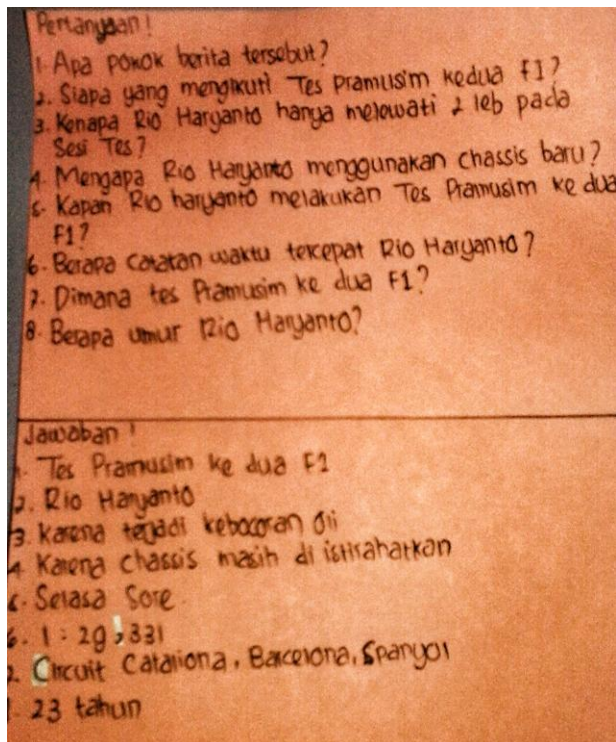 Pertanyaan!
1. Apa pokok berita tersebut?
2. Siapa yang mengikuti Tes pramusim kedua F1?
3. Kenapa Rio Haryanto hanya melewati 2 leb pada
Sesi Tes?
4. Mengapa Rio Haryanto menggunakan chassis baru?
5. Kapan Rio haryanto melakukan Tes Pramusim ke dua
F1?
6. Berapa catatan waktu tercepat Rio Haryanto?
7. Dimana tes Pramusim ke dua F1?
8. Berapa umur Rio Haryanto?
Jawaban!
1. Tes Pramusim ke dua F1
2. Rio Haryanto
3. Karena terjadi kebocoran oli
4. Karena chassis masih di istirahatkan
5. Selasa Sore
6. 1 : 29,331
7. Circuit Cataliona, Barcelona, Spanyol
23 tahun